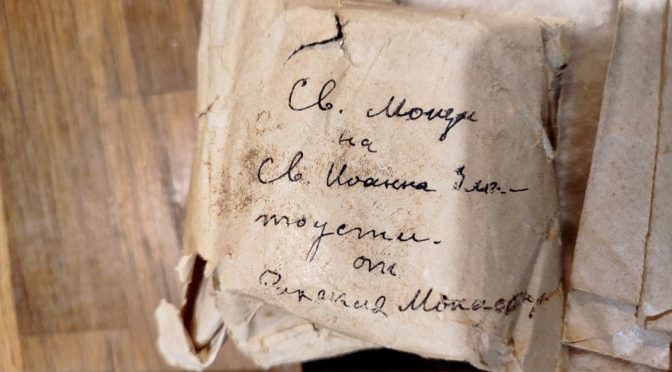 Св. Мощи
на
Св. Иоанна Зла-
тоусти.
от
Рилския Монастир